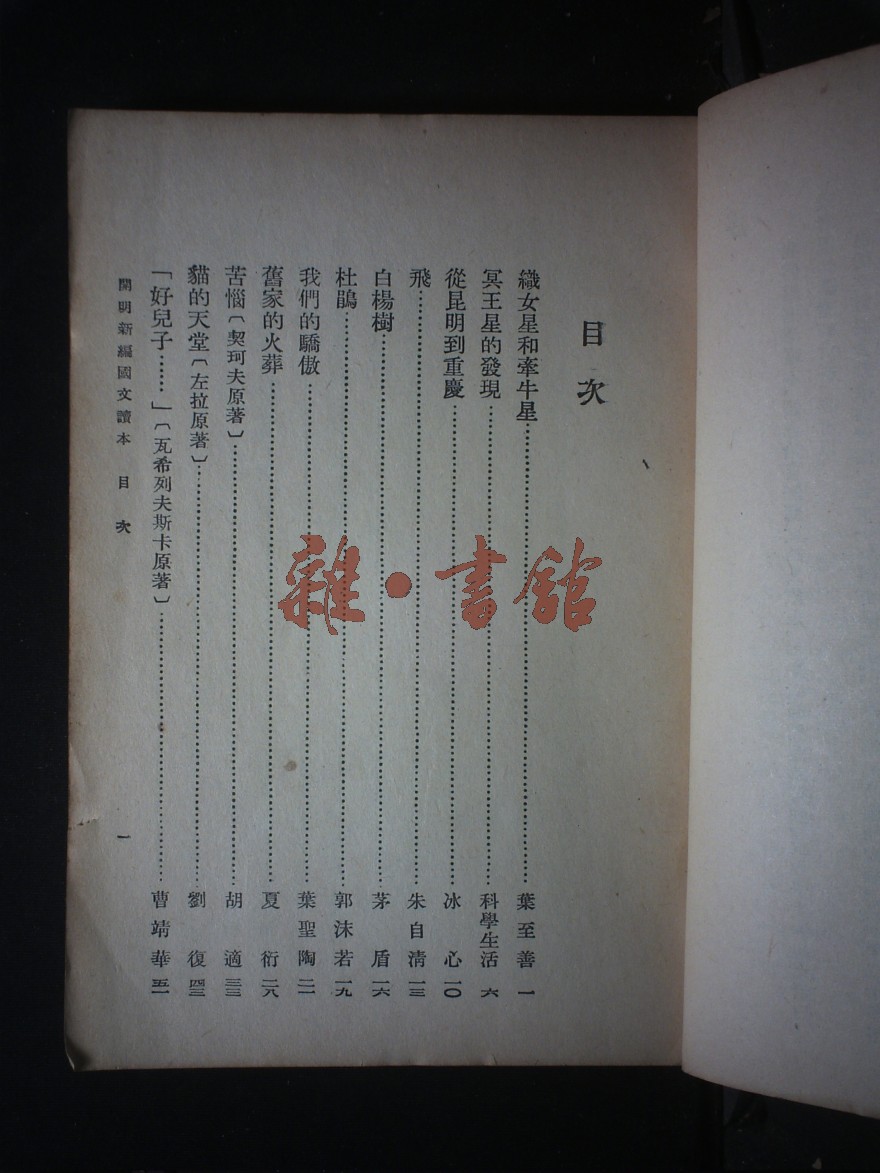 目次
織女星和牽牛星……葉至善 一
冥王星的發現……科學生活 六
從昆明到重慶……冰心 一〇
飛……朱自清 一三
白楊樹……茅盾 一六
杜鵑……郭沫若 一九
我們的驕傲……葉聖陶 二一
舊家的火葬……夏衍 二八
苦惱〔契珂夫原著〕……胡適 三三
貓的天堂〔左拉原著〕……劉復 四三
「好兒子……」〔瓦希列夫斯卡原著〕……曹靖華 五一
開明新編國文讀本 目次 一
雜·書館